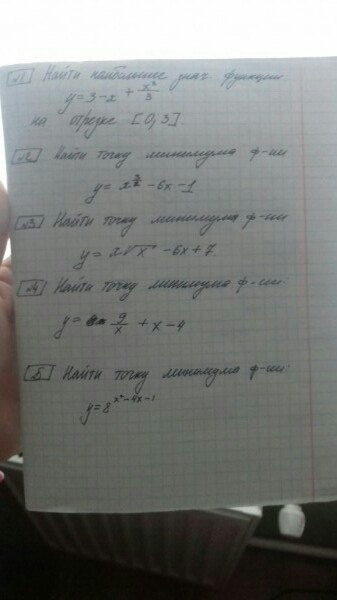 №1 Найти наибольшее знач. функции
y = 3 - x + x³/3
на отрезке [0,3].
№2 Найти точку минимума ф-ии
y = x^(3/2) - 6x - 1
№3 Найти точку минимума ф-ии
y = x√x - 6x + 7
№4 Найти точку минимума ф-ии
y = 9/x + x - 4
№5 Найти точку минимума ф-ии
y = 8^(x² - 4x - 1)